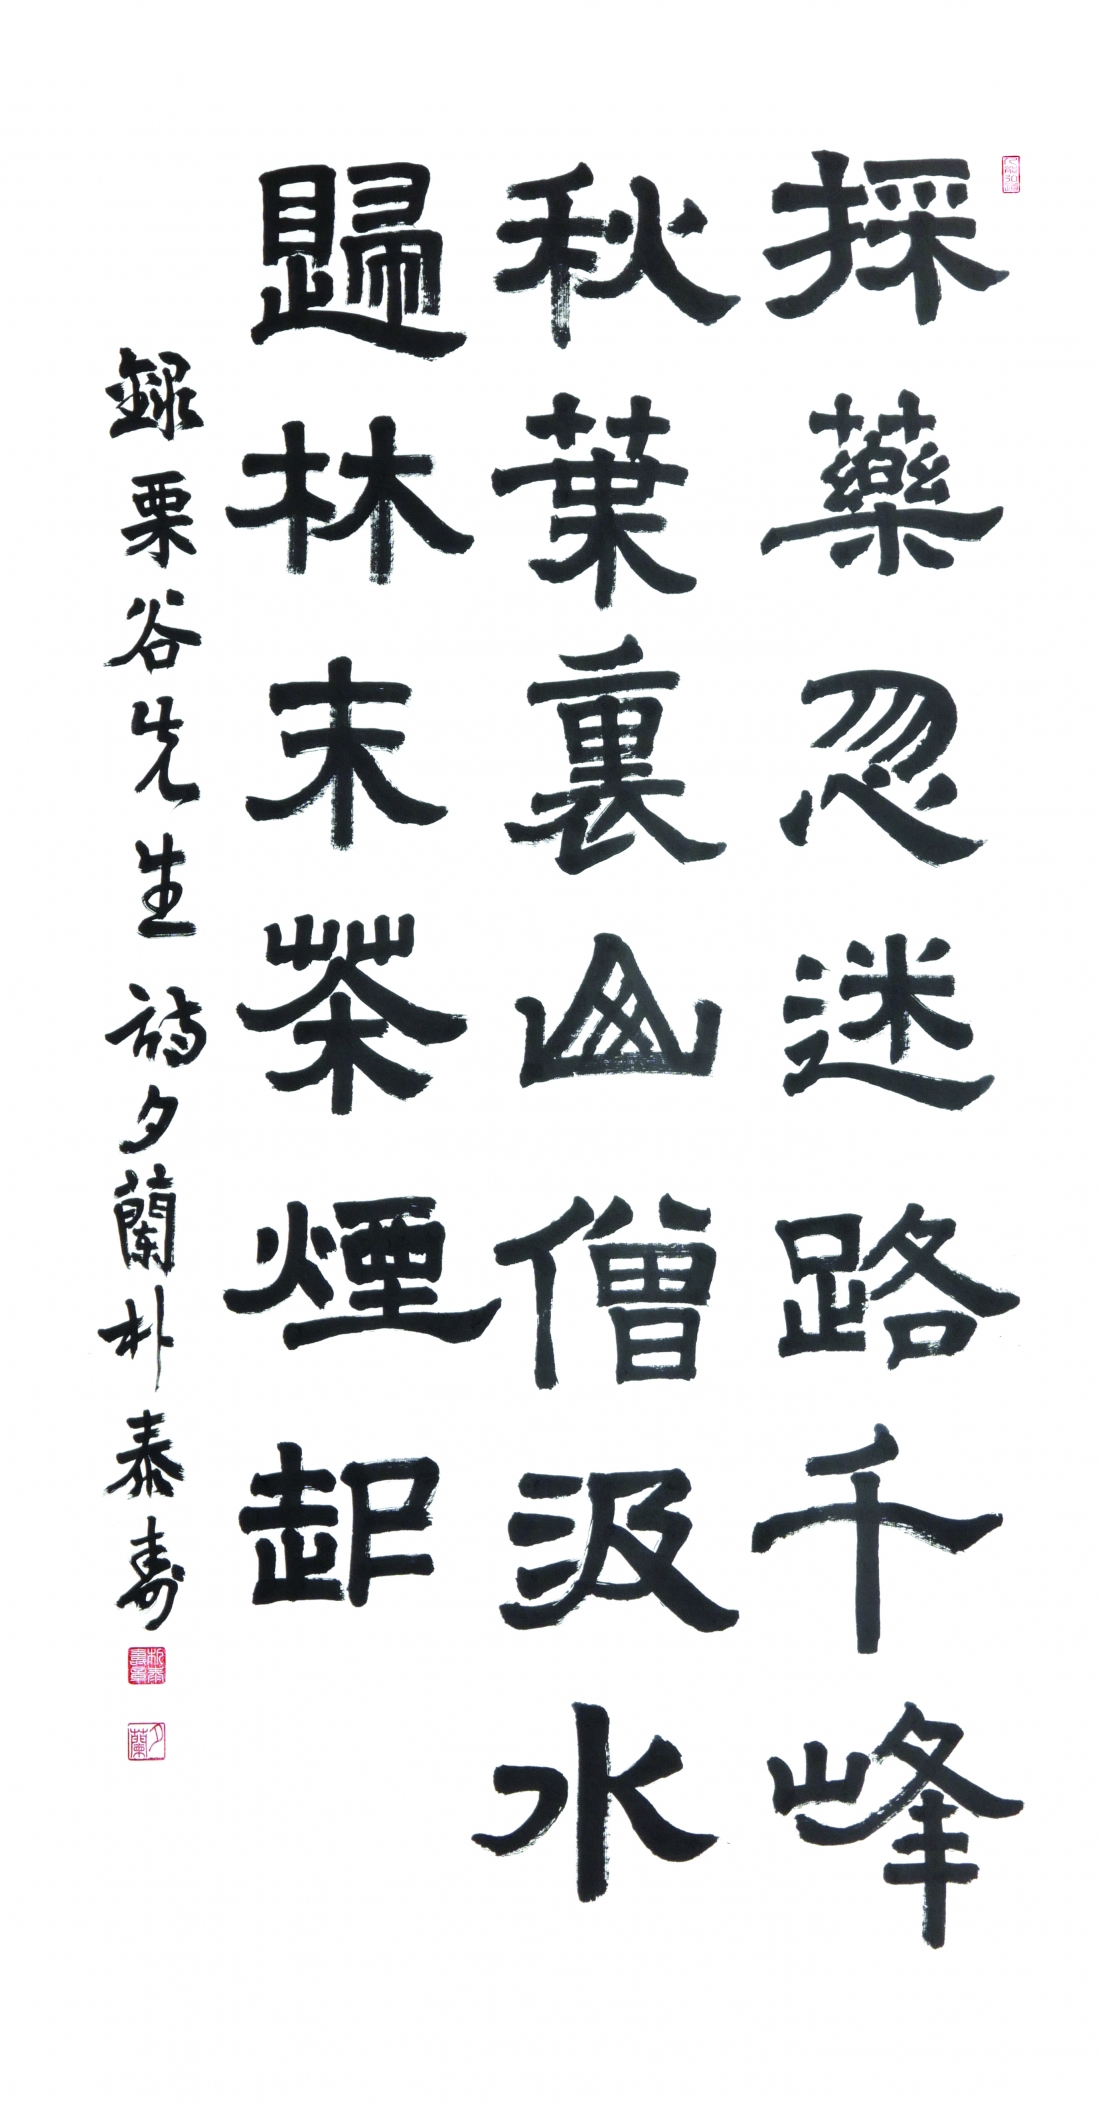 採藥忽迷路千峰
秋葉裏山僧汲水
歸林末茶煙起
錄栗谷先生詩夕蘭朴泰壽
夕蘭